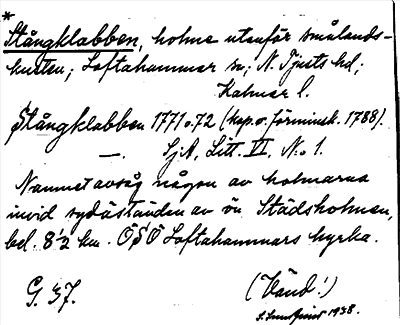 *
Stångklabben, holme utanför smålands-
kusten; Loftahammar sn; N. Tjusts hd;
Kalmar l.
Stångklabben 1771 o. 72 (kop. o. förminsk. 1788).
—. SjA, Litt. VI, N:o 1.
Namnet avsåg någon av holmarna
invid sydöständen av ön Städsholmen,
bel. 8½ km. ÖSÖ Loftahammars kyrka.
G. 37. (Vänd!)
1938.